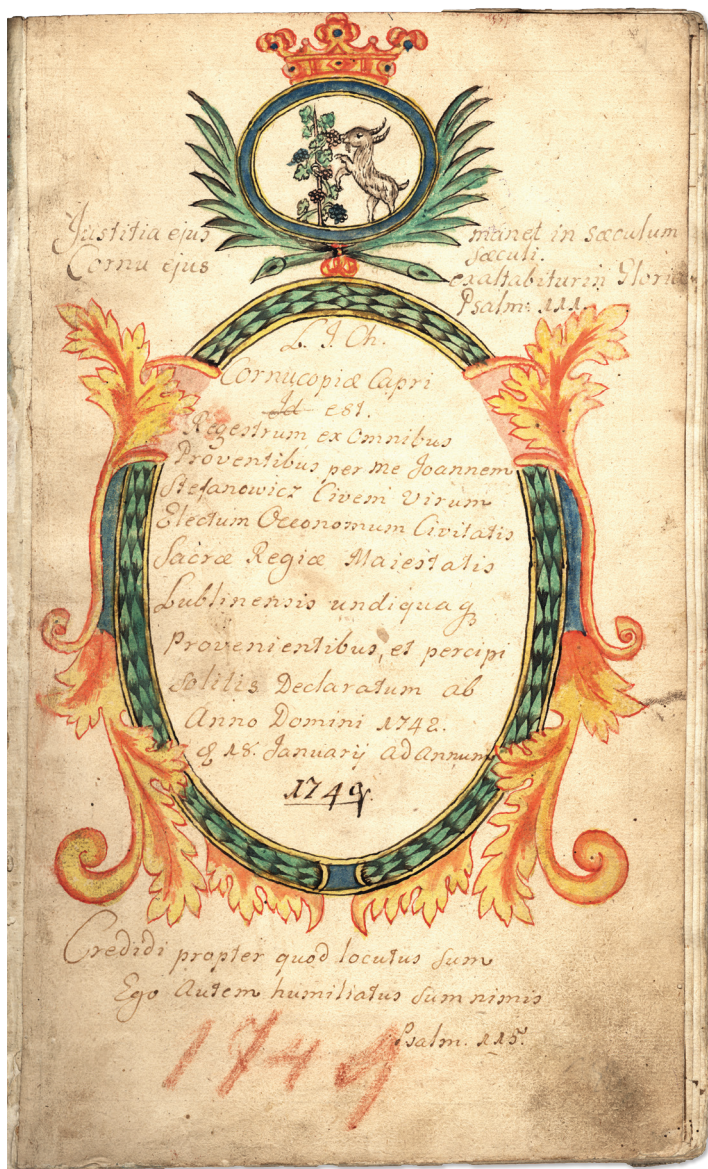 Justitia ejus manet in sæculum
sæculi.
Cornu ejus exaltabitur in Gloria
Psalm: 111.
L. J. Ch.
Cornucopiæ Capri
Id est.
Regestrum ex Omnibus
Proventibus per me Joannem
Stefanowicz Civem Virum
Electum Oeconomum Civitatis
Sacræ Regiæ Maiestatis
Lublinensis undiquaq3
Provenientibus, et percipi
solitis Declaratum ab
Anno Domini 1748.
18. Januarij ad annum
1749.
Credidi propter quod locutus sum
Ego Autem humiliatus sum nimis
Psalm. 115.
1749